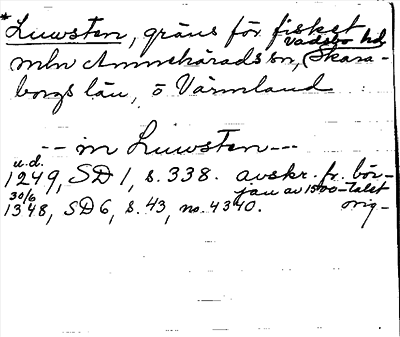 *Liuwsten, gräns för fisket
Vadsbo hd
mln Amnehärads sn, Skara-
borgs län, o Värmland
-- in Liuwsten --
u.d.
1249, SD 1, s. 338. avskr. fr. bör-
jan av 1500-talet
30/6
1348, SD 6, s. 43, no. 4340. orig-